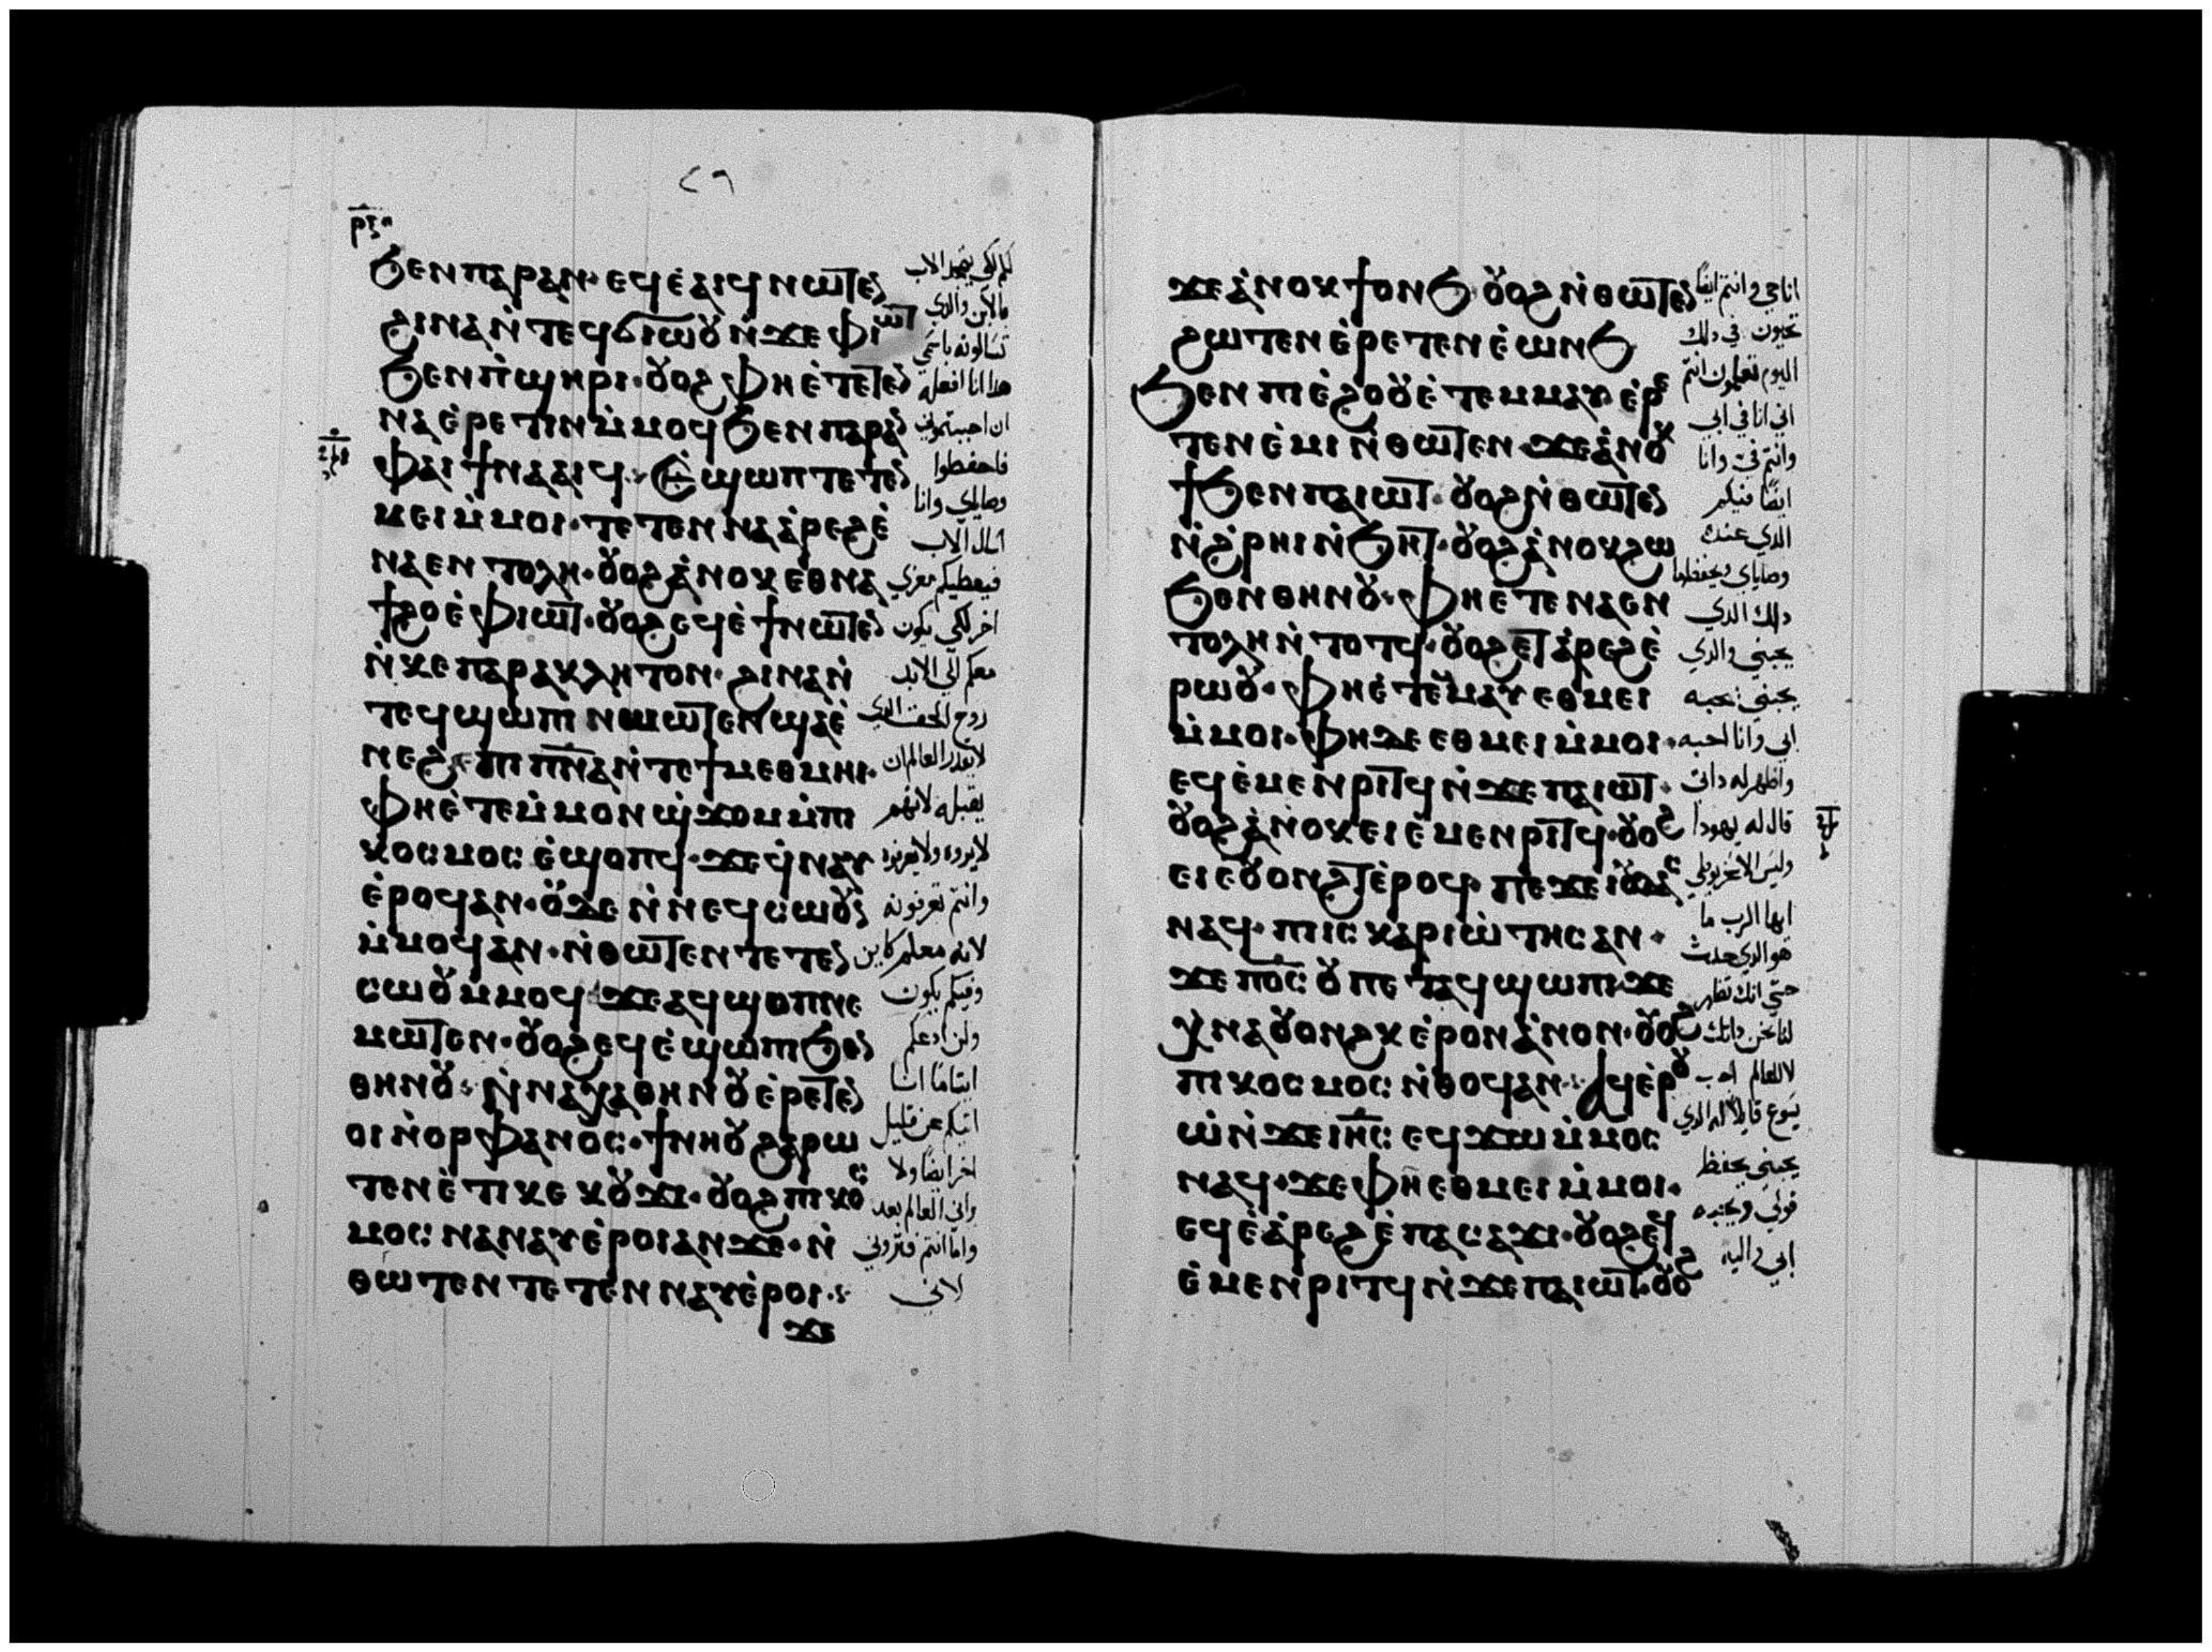 ⲣⲝⲏ
٢٩
ϧⲉⲛⲡⲁⲣⲁⲛ· ⲉϥⲉ̀ⲁⲓϥ ⲛⲱⲧⲉⲛ
ϩⲓⲛⲁⲛ̀ⲧⲉϥϭⲓⲱⲟⲩ ⲛ̀ϫⲉ ⲫⲓⲱⲧ
ϧⲉⲛⲡ̀ϣⲏⲣⲓ· ⲟⲩⲟϩ ⲫⲏⲉ̀ⲧⲉⲧⲉⲛ
ⲛⲁⲉ̀ⲣⲉⲧⲓⲛ ⲙ̀ⲙⲟϥ ϧⲉⲛ ⲡⲁⲣⲁⲛ
ⲫⲁⲓ ϯⲛⲁⲁⲓϥ· ⲉ̀ϣⲱⲡ ⲧⲉⲧⲉⲛ
ⲙⲉⲓ ⲙ̀ⲙⲟⲓ· ⲧⲉⲧⲉⲛⲛⲁⲁ̀ⲣⲉϩⲉ̀
ⲛⲁⲉⲛⲧⲟⲗⲏ· ⲟⲩⲟϩ ⲁ̀ⲛⲟⲕ ⲉⲑⲛⲁ
ϯϩⲟⲉ̀ ⲫⲓⲱⲧ· ⲟⲩⲟϩ ⲉϥⲉ̀ϯⲛⲱⲧⲉⲛ
ⲛ̀ⲕⲉⲡⲁⲣⲁⲕⲗⲏⲧⲟⲛ· ϩⲓⲛⲁⲛ̀
ⲧⲉϥϣⲱⲡⲓ ⲛⲉⲙⲱⲧⲉⲛ ϣⲁⲉ̀
ⲛⲉϩ· ⲡⲓⲡⲛ̅ⲁ̅ ⲛ̀ⲧⲉϯⲙⲉⲑⲙⲏⲓ·
ⲫⲏⲉ̀ⲧⲉⲙ̀ⲙⲟⲛ ϣ̀ϫⲟⲙ ⲙ̀ⲡⲓ
ⲕⲟⲥⲙⲟⲥ ⲉ̀ϣⲟⲡϥ· ϫⲉ ϥ̀ⲛⲁⲩ
ⲉ̀ⲣⲟϥ ⲁⲛ· ⲟⲩϫⲉ ⲛ̀ⲛⲉϥⲥⲱⲟⲩⲛ
ⲙ̀ⲙⲟϥ ⲁ̀ⲛ· ⲛ̀ⲑⲱⲧⲉⲛ ⲧⲉⲧⲉⲛ
ⲥⲱⲟⲩⲙⲙⲟϥ ϫⲉ ⲁϥϣⲟⲡ ⲛⲉ
ⲙⲱⲧⲉⲛ· ⲟⲩⲟϩ ⲉϥⲉ̀ϣⲱⲡⲓ ϧⲉⲛ
ⲑⲏⲛⲟⲩ· ⲛ̀ⲛⲁⲭⲁⲑⲏⲛⲟⲩ ⲉ̀ⲣⲉⲧⲉⲛ
ⲟⲓ ⲛ̀ⲟⲣⲫⲁⲛⲟⲥ· ϯⲛⲏⲟⲩ ϩⲁⲣⲱ
ⲧⲉⲛ ⲉ̀ⲧⲓ ⲕⲉ ⲕⲟⲩϫⲓ· ⲟⲩⲟϩ ⲡⲓⲕⲟⲥ
ⲙⲟⲥ ⲛⲁⲛⲁⲩ ⲉ̀ⲣⲟⲓ ⲁⲛ ϫⲉ· ⲛ̀
ⲑⲱⲧⲉⲛ ⲧⲉⲧⲉⲛⲛⲁⲩ ⲉ̀ⲣⲟⲓ·
ϫⲉ
تسالونه باسمي
هدا انا افعله
ان احببتموني
فاحفطوا
وصاياي وانا
اسال الاب
فيعطيكم معزي
اخر لكي يكون
معكم الي الابد
روح الحق الدي
لا يقدر العالم ان
يقبله لانهم
لا يروه ولا يعرفوه
وانتم تعرفونه
لانه معكم كاين
وفيكم يكون
ولن ادعكم
ايتاما انا
اتيكم عن قليل
اخر ايضا ولا
واما انتم فتروني
لاني
ϫⲉ ⲁ̀ⲛⲟⲕ ϯⲟⲛϧ· ⲟⲩⲟϩ ⲛ̀ⲑⲱⲧⲉⲛ
ϩⲱⲧⲉⲛ ⲉ̀ⲣⲉⲧⲉⲛⲉ̀ⲱⲛϧ
ϧⲉⲛ ⲡⲓⲉ̀ϩⲟⲟⲩ ⲉ̀ⲧⲉⲙⲙⲁⲩ ⲉ̀ⲣⲉ
ⲧⲉⲛⲉ̀ⲙⲓ ⲛ̀ⲑⲱⲧⲉⲛ ϫⲉ ⲁ̀ⲛⲟⲕ
ϯϧⲉⲛ ⲡⲁⲓⲱⲧ· ⲟⲩⲟϩ ⲛ̀ⲑⲱⲧⲉⲛ
ⲛ̀ϩ̀ⲣⲏⲓ ⲛ̀ϧⲏⲧ· ⲟⲩⲟϩ ⲁ̀ⲛⲟⲕ ϩⲱ
ϧⲉⲛ ⲑⲏⲛⲟⲩ· ⲫⲏⲉ̀ⲧⲉ ⲛⲁⲉⲛ
ⲧⲟⲗⲏ ⲛ̀ⲧⲟⲧϥ· ⲟⲩⲟϩ ⲉⲧⲁ̀ⲣⲉϩ ⲉ̀
ⲣⲱⲟⲩ· ⲫⲏⲉ̀ⲧⲉⲙⲙⲁⲩ ⲉⲑⲙⲉⲓ
ⲙ̀ⲙⲟⲓ· ⲫⲏ ϫⲉ ⲉⲑⲙⲉⲓ ⲙ̀ⲙⲟⲓ·
ⲉϥⲉ̀ⲙⲉⲛⲣⲓⲧϥ ⲛ̀ϫⲉ ⲡⲁⲓⲱⲧ·
ⲟⲩⲟϩ ⲁ̀ⲛⲟⲕ ⲉⲓⲉ̀ⲙⲉⲛⲣⲓⲧϥ· ⲟⲩⲟϩ
ⲉⲓⲉⲟⲩⲟⲛϩⲧ ⲉ̀ⲣⲟϥ· ⲡⲉϫⲉ ⲓⲟⲩⲇⲁⲥ
ⲛⲁϥ· ⲡⲓⲥⲕⲁⲣⲓⲱ̀ⲧⲏⲥ ⲁⲛ·
ϫⲉ ⲡⲟ̅ⲥ̅ ⲟⲩ ⲡⲉ ⲧⲁϥϣⲱⲡⲓ ϫⲉ
ⲭ̀ⲛⲁⲟⲩⲟⲛϩⲕ ⲉ̀ⲣⲟⲛ ⲁ̀ⲛⲟⲛ· ⲟⲩⲟϩ
ⲡⲓⲕⲟⲥⲙⲟⲥ ⲛ̀ⲑⲟϥ ⲁⲛ· ⲁϥⲉ̀ⲣⲟⲩ
ⲱ̀ ⲛ̀ϫⲉ ⲓⲏ̅ⲥ̅ ⲉϥϫⲱ ⲙ̀ⲙⲟⲥ
ⲛⲁϥ· ϫⲉ ⲫⲏ ⲉⲑⲙⲉⲓ ⲙ̀ⲙⲟⲓ·
ⲉϥⲉ̀ⲁ̀ⲣⲉϩ ⲉ̀ ⲡⲁⲥⲁϫⲓ· ⲟⲩⲟϩ ⲉϥ
ⲉ̀ⲙⲉⲛⲣⲓⲧϥ ⲛ̀ϫⲉ ⲡⲁⲓⲱⲧ· ⲟⲩⲟϩ
انا حي وانتم ايضا
تحيون في دلك
اليوم تعلمون انتم
اني انا في ابي
وانتم في وانا
ايضا فيكم
الدي عنده
وصاياي ويحفطها
دلك الدي
يحبني والدي
يحبني يحبه
ابي وانا احبه
واظهر له داتي
قال له يهودا
وليس الاسخريوطي
ايها الرب ما
هو الدي حدث
حتي انك تظهر
لنا نحن داتك
يسوع قايلا له الدي
يحبني يحفظ
قولي ويحبه
ابي واليه